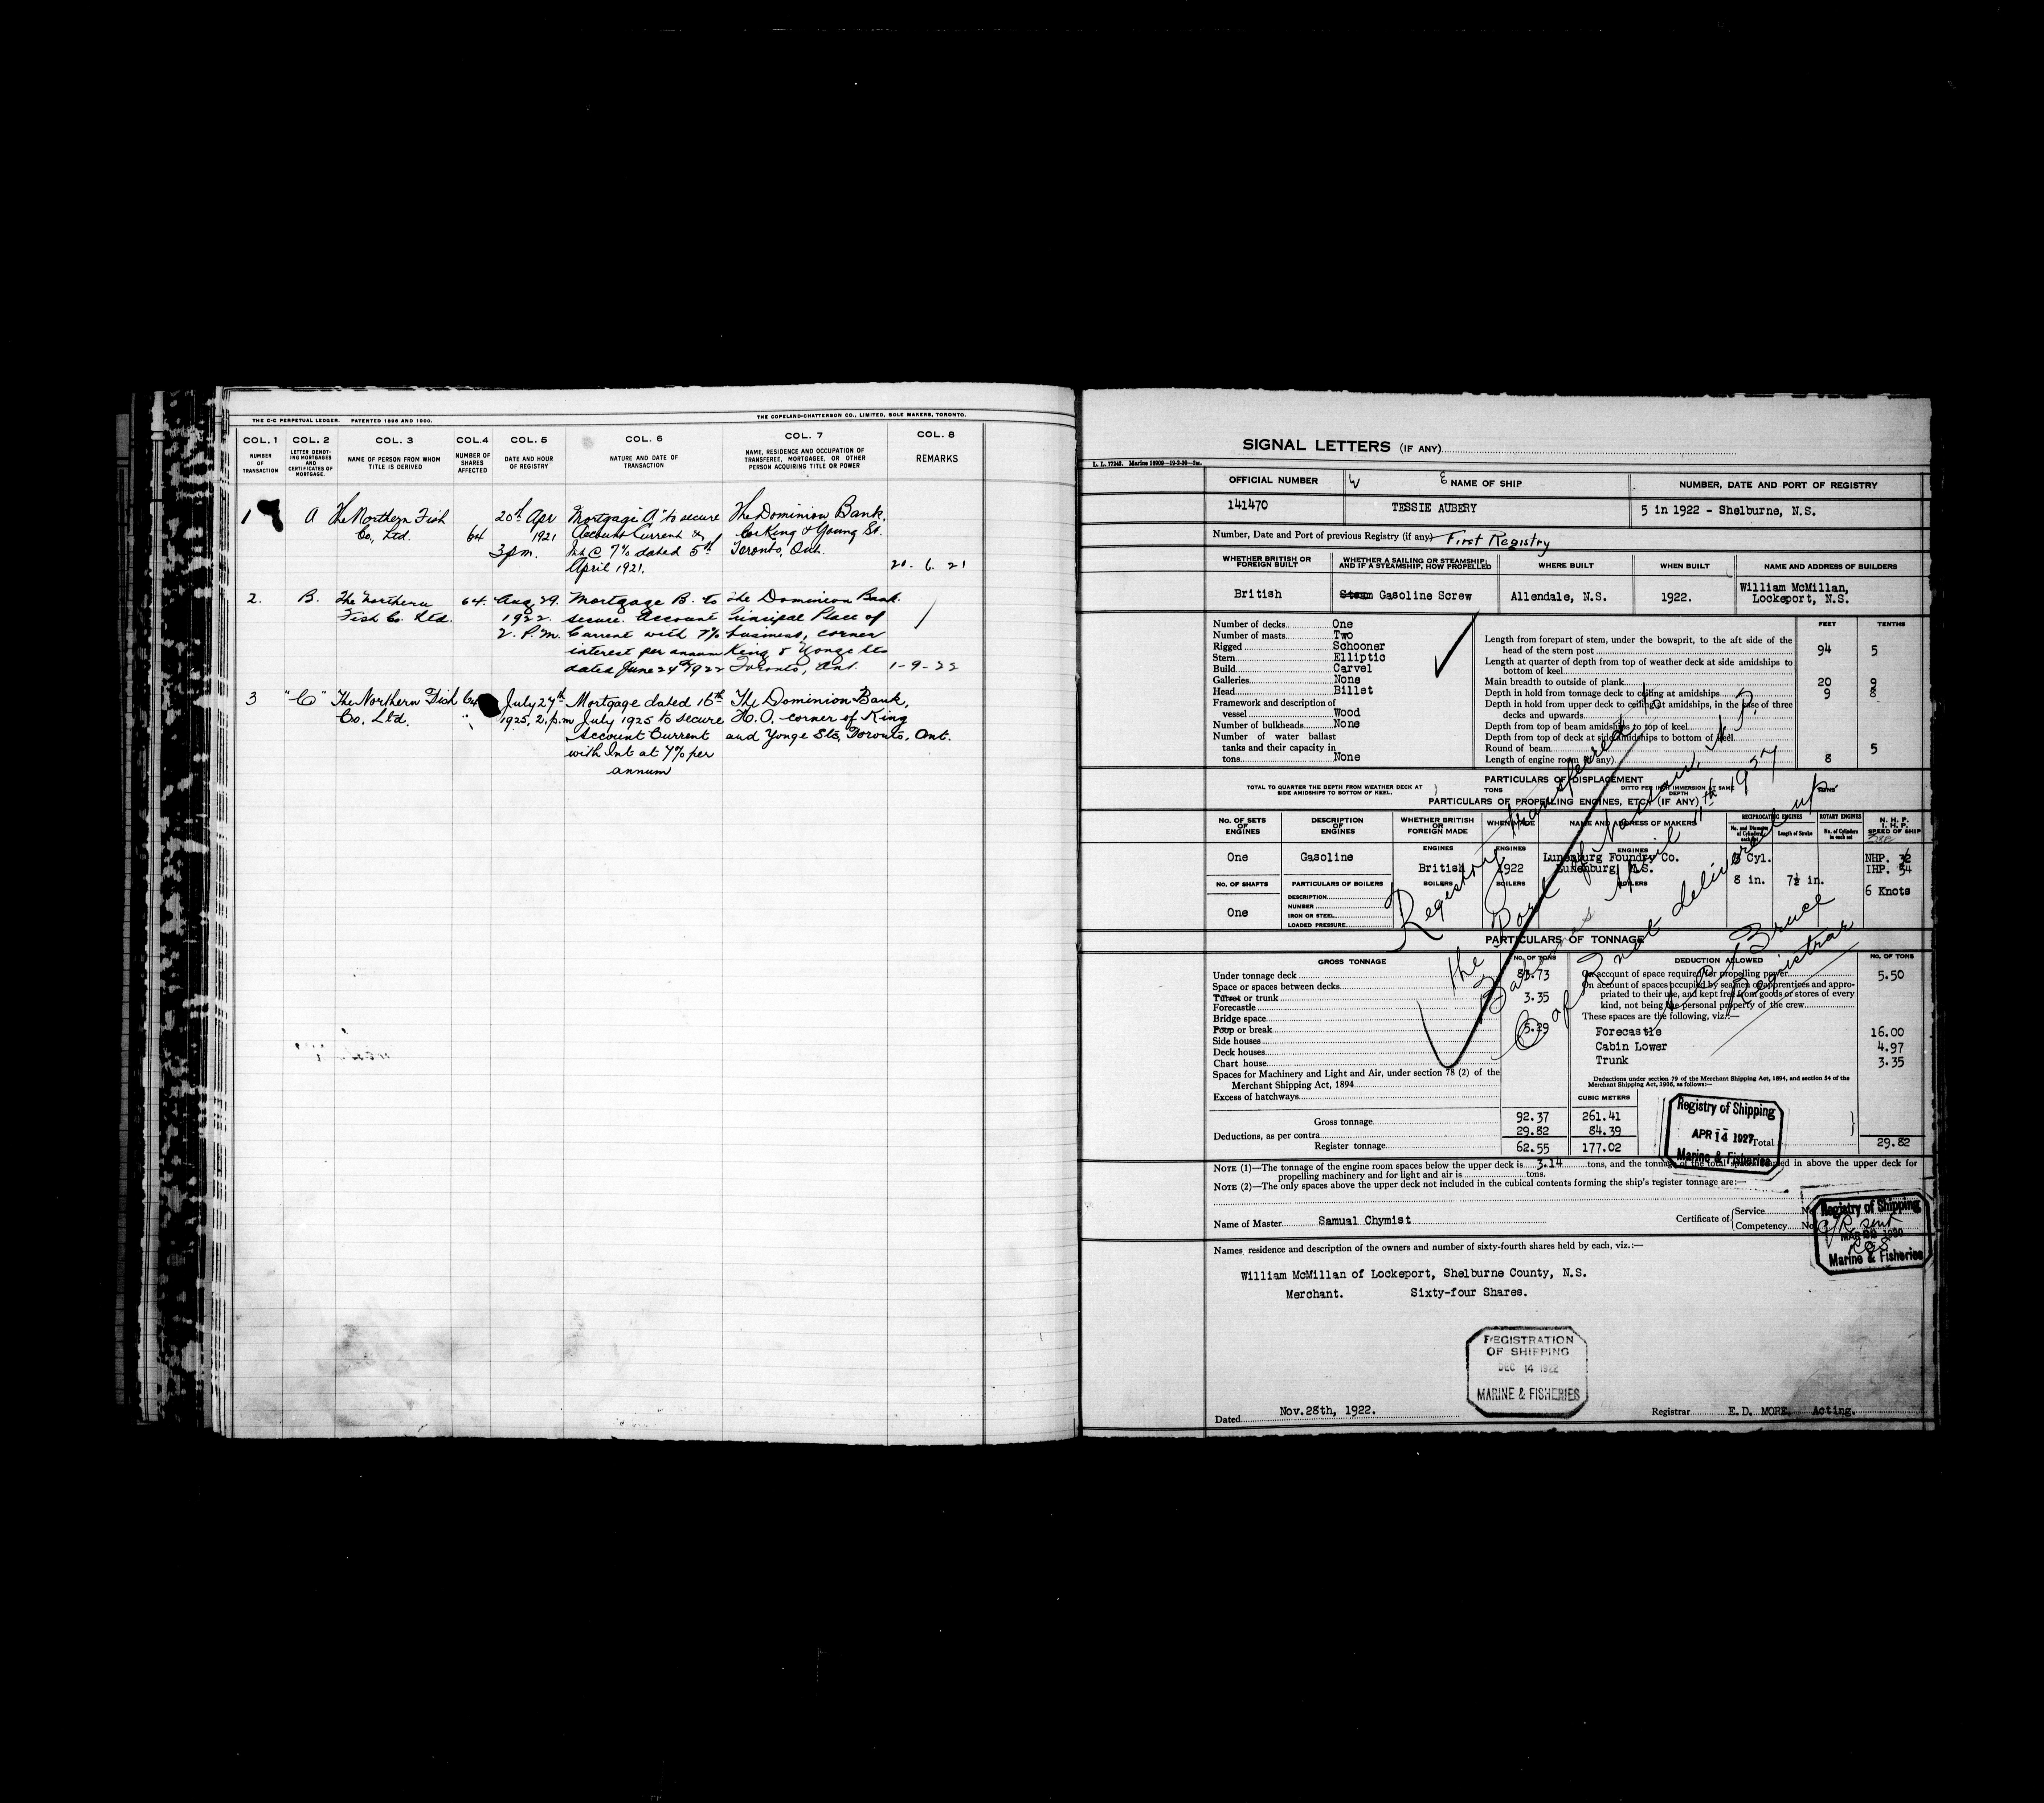 THE C-C PERPETUAL LEDGER. PATENTED 1896 AND 1900.
THE COPELAND-CHATTERSON CO., LIMITED, SOLE MAKERS, TORONTO.
COL. 1 COL. 2 COL. 3 COL. 4 COL. 5 COL. 6 COL. 7 COL. 8
NUMBER OF TRANSACTION
LETTER DENOTING MORTGAGES AND CERTIFICATES OF MORTGAGE.
NAME OF PERSON FROM WHOM TITLE IS DERIVED
NUMBER OF SHARES AFFECTED
DATE AND HOUR OF REGISTRY
NATURE AND DATE OF TRANSACTION
NAME, RESIDENCE AND OCCUPATION OF TRANSFEREE, MORTGAGEE, OR OTHER PERSON ACQUIRING TITLE OR POWER
REMARKS
1 A The Northern Fish 20th Apr Mortgage "A" to secure The Dominion Bank.
Co., Ltd. 64 1921 Account Current & Cor King & Young St.
3 pm. Int @ 7% dated 5th Toronto, Ont.
April 1921. 20. 6. 21
2. B. The Northern 64. Aug 29. Mortgage B. to The Dominion Bank.
Fish Co. Ltd. 1922. secure. Account Principal Place of
2. P.M. Current with 7% business, corner
interest per annum King & Yonge Sts
dated June 24th 1922 Toronto, Ont. 1-9-22
3 "C" The Northern Fish 64 July 27th Mortgage dated 16th The Dominion Bank,
Co., Ltd. " 1925, 2, p.m July 1925 to secure H.O. corner of King
Account Current and Yonge Sts, Toronto, Ont.
with Int at 7% per
annum
SIGNAL LETTERS (IF ANY)
L. L. 77243. Marine 16909—19-3-20—2M.
OFFICIAL NUMBER NAME OF SHIP NUMBER, DATE AND PORT OF REGISTRY
141470 TESSIE AUBERY 5 in 1922 - Shelburne, N.S.
Number, Date and Port of previous Registry (if any) First Registry
WHETHER BRITISH OR FOREIGN BUILT
WHETHER A SAILING OR STEAMSHIP; AND IF A STEAMSHIP, HOW PROPELLED
WHERE BUILT WHEN BUILT NAME AND ADDRESS OF BUILDERS
British Steam Gasoline Screw Allendale, N.S. 1922. William McMillan,
Lockeport, N.S.
FEET TENTHS
Number of decks One
Number of masts Two
Rigged Schooner
Stern Elliptic
Build Carvel
Galleries None
Head Billet
Framework and description of
vessel Wood
Number of bulkheads None
Number of water ballast
tanks and their capacity in
tons None
Length from forepart of stem, under the bowsprit, to the aft side of the
head of the stern post 94 5
Length at quarter of depth from top of weather deck at side amidships to
bottom of keel
Main breadth to outside of plank 20 9
Depth in hold from tonnage deck to ceiling at amidships 9 8
Depth in hold from upper deck to ceiling at amidships, in the case of three
decks and upwards
Depth from top of beam amidships to top of keel
Depth from top of deck at side amidships to bottom of keel
Round of beam 5
Length of engine room (if any) 8
PARTICULARS OF DISPLACEMENT
TOTAL TO QUARTER THE DEPTH FROM WEATHER DECK AT SIDE AMIDSHIPS TO BOTTOM OF KEEL.
TONS
DITTO PER INCH IMMERSION AT SAME DEPTH
TONS
PARTICULARS OF PROPELLING ENGINES, ETC. (IF ANY)
No. OF SETS OF ENGINES
DESCRIPTION OF ENGINES
WHETHER BRITISH OR FOREIGN MADE
WHEN MADE
NAME AND ADDRESS OF MAKERS
RECIPROCATING ENGINES
No. and Diameter of Cylinders each set
Length of Stroke
ROTARY ENGINES
No. of Cylinders in each set
N. H. P.
I. H. P.
SPEED OF SHIP
ENGINES ENGINES ENGINES
One Gasoline British 1922 Lunenburg Foundry Co. 3 Cyl. NHP. 32
Lunenburg N.S. IHP. 54
8 in. 7½ in. 6 Knots
No. OF SHAFTS PARTICULARS OF BOILERS BOILERS BOILERS BOILERS
One
DESCRIPTION
NUMBER
IRON OR STEEL
LOADED PRESSURE
PARTICULARS OF TONNAGE
GROSS TONNAGE No. OF TONS DEDUCTION ALLOWED No. OF TONS
Under tonnage deck 83.73
Space or spaces between decks
Turret or trunk 3.35
Forecastle
Bridge space
Poop or break 5.29
Side houses
Deck houses
Chart house
Spaces for Machinery and Light and Air, under section 78 (2) of the
Merchant Shipping Act, 1894
Excess of hatchways
On account of space required for propelling power 5.50
On account of spaces occupied by seamen or apprentices and appro-
priated to their use, and kept free from goods or stores of every
kind, not being the personal property of the crew
These spaces are the following, viz.:—
Forecastle 16.00
Cabin Lower 4.97
Trunk 3.35
Deductions under section 79 of the Merchant Shipping Act, 1894, and section 54 of the
Merchant Shipping Act, 1906, as follows:—
CUBIC METERS
Gross tonnage 92.37 261.41
Deductions, as per contra 29.82 84.39
Register tonnage 62.55 177.02
Total 29.82
Registry of Shipping
APR 14 1927
Marine & Fisheries
Registry transferred to
the Port of Nassau, N.P.
Bahamas April 11th 1927
C of R not delivered up.
Bruce
Registrar
NOTE (1)—The tonnage of the engine room spaces below the upper deck is 3.14 tons, and the tonnage of the total spaces framed in above the upper deck for
propelling machinery and for light and air is tons.
NOTE (2)—The only spaces above the upper deck not included in the cubical contents forming the ship's register tonnage are:—
Name of Master Samual Chymist Certificate of Service No.
Competency No.
Registry of Shipping
MAR 1930
Marine & Fisheries
Names, residence and description of the owners and number of sixty-fourth shares held by each, viz.:—
William McMillan of Lockeport, Shelburne County, N.S.
Merchant. Sixty-four Shares.
REGISTRATION
OF SHIPPING
DEC 14 1922
MARINE & FISHERIES
Dated Nov.28th, 1922. Registrar E.D. MORE. Acting.